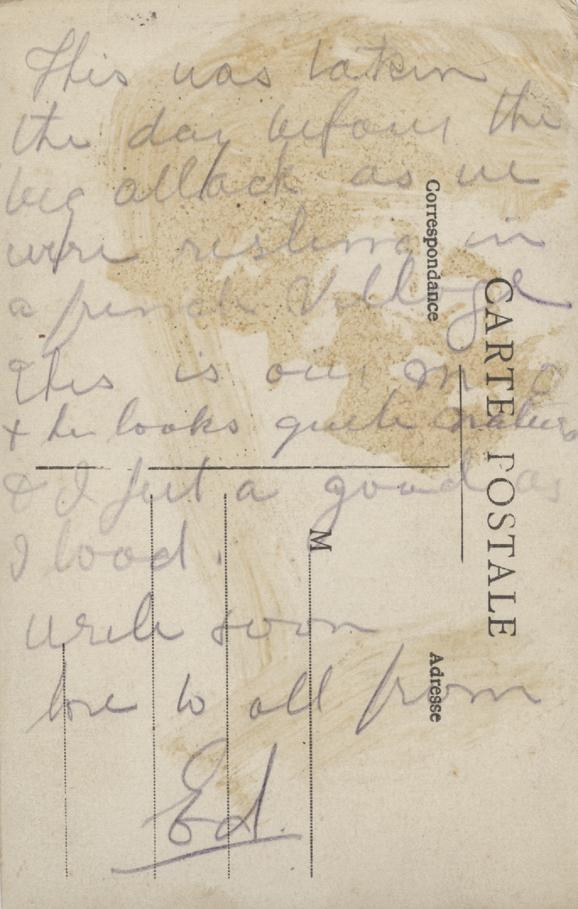 This was taken
the day before the
big attack as we
were resting in
a french Village
this is our M O
& he looks quite natural
& I feel a good as
I lood.
write soon
love to all from
Ed.
Correspondance
CARTE POSTALE
M
Adresse